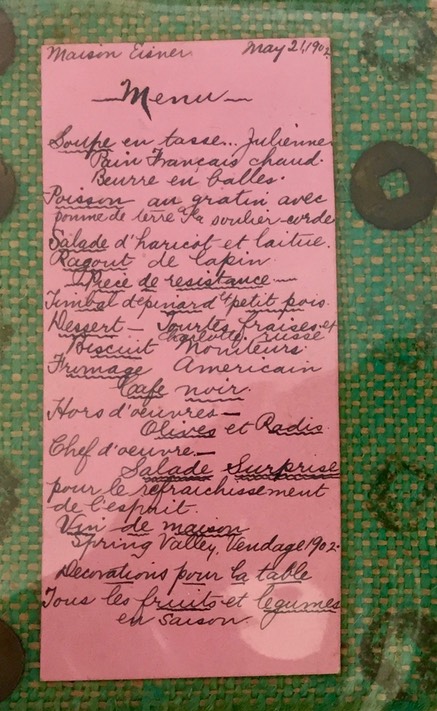 Maison Eisner. May 21, 1902
Menu
Soupe en tasse... Julienne
Pain Francais chaud.
Beurre en balles.
Poisson au gratin avec
pomme de terre a la soulier-corde
Salade d'haricot et laitue.
Ragout de lapin
Piece de resistance
Timbal d'epinard et petit pois
Dessert – Tourtes fraises et
Charlotte russe
Biscuit Moniteurs.
Fromage Americain
Cafe noir.
Hors d'oeuvres –
Olives et Radis
Chef d'oeuvre –
Salade Surprise
pour le refraichissement
de l'esprit.
Vin de maison
Spring Valley, Vendage 1902.
Decorations pour la table
Tous les fruits et legumes
en saison.